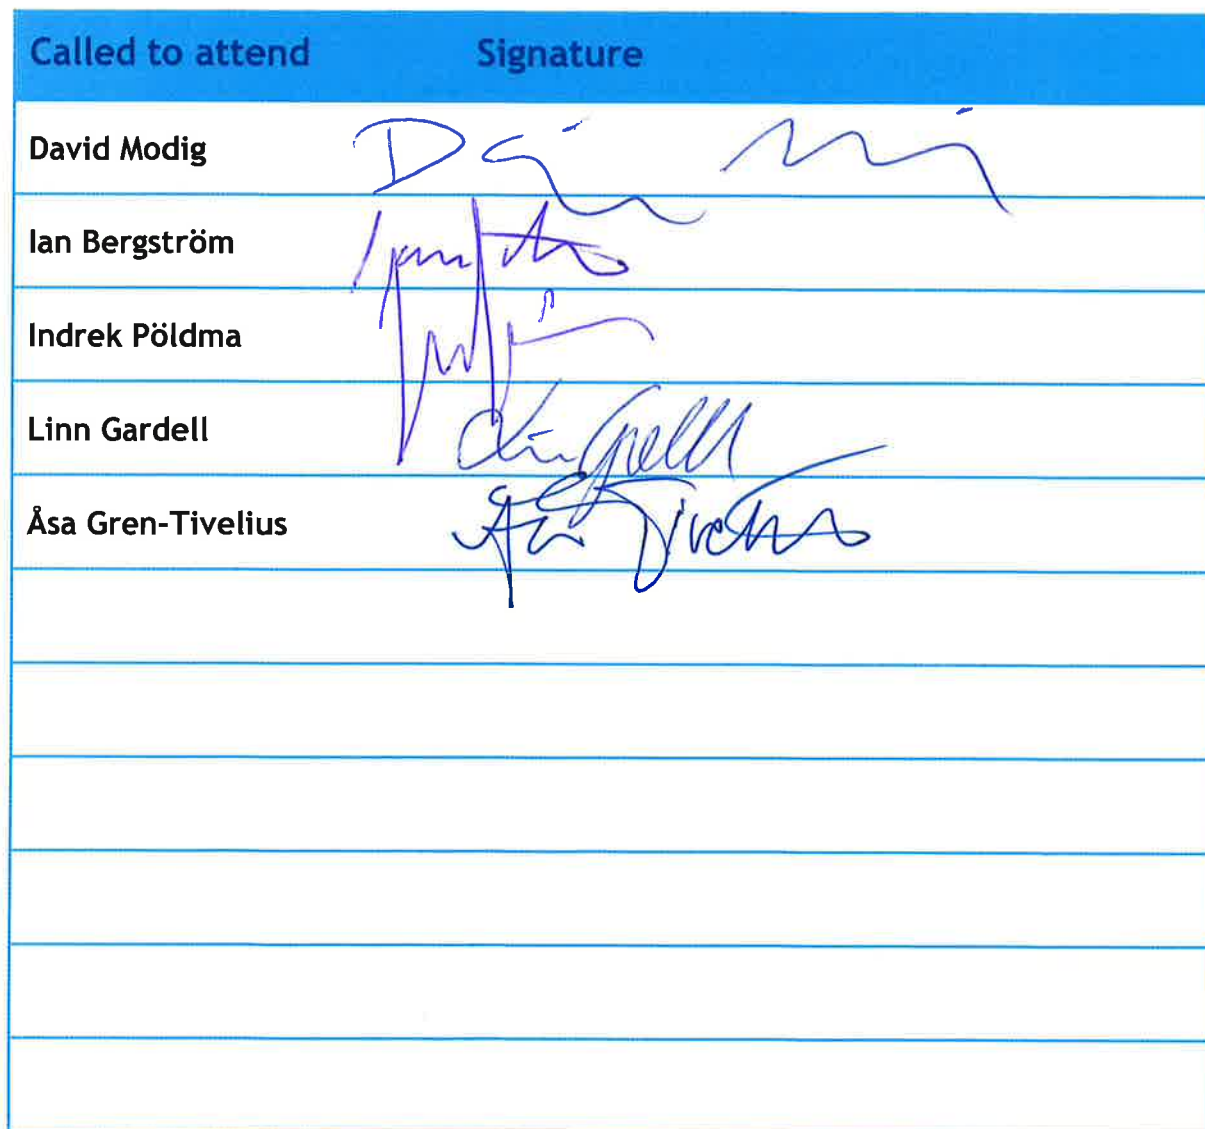 Called to attend Signature
David Modig
Ian Bergström
Indrek Pöldma
Linn Gardell
Åsa Gren-Tivelius